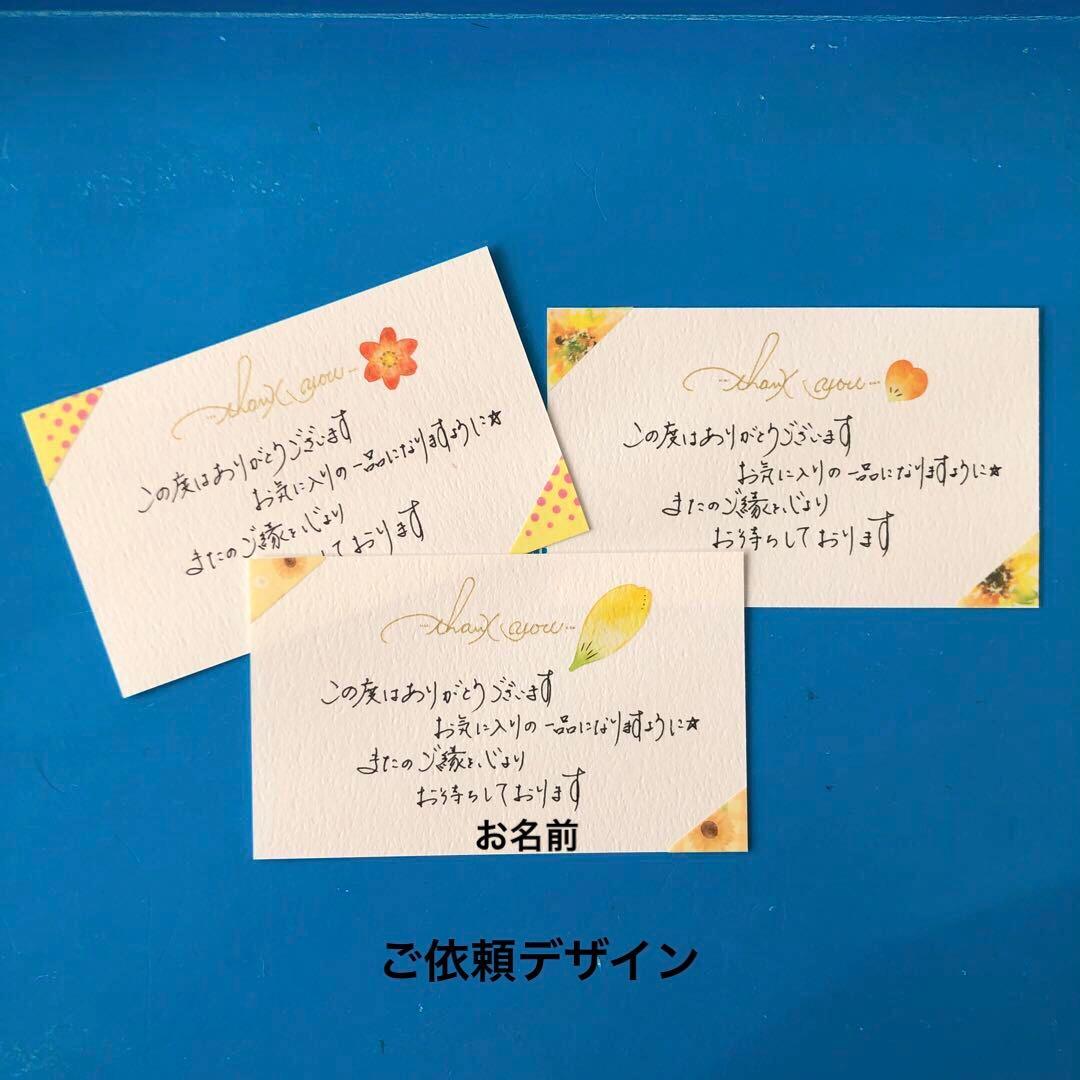 thank you
この度はありがとうございます
お気に入りの一品になりますように☆
またのご縁を心より
しております
thank you
この度はありがとうございます
お気に入りの一品になりますように☆
またのご縁を心より
お待ちしております
thank you
この度はありがとうございます
お気に入りの一品になりますように☆
またのご縁を心より
お待ちしております
お名前
ご依頼デザイン